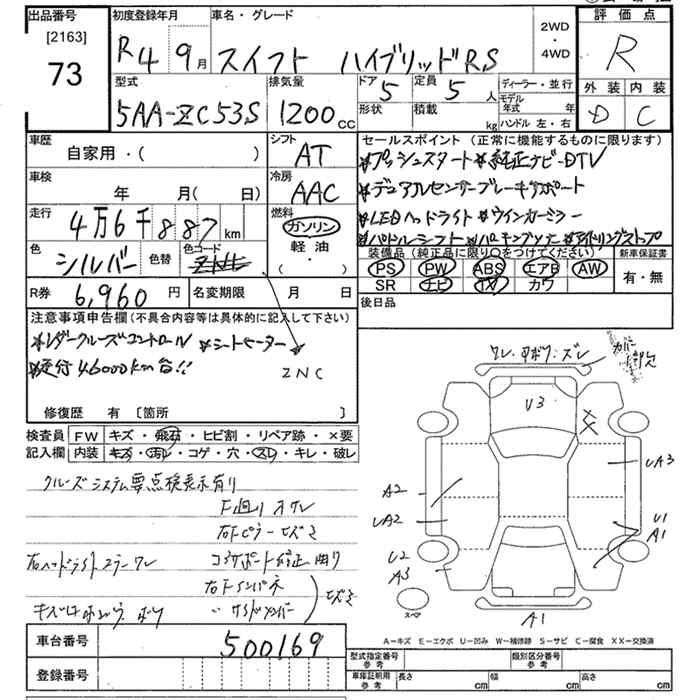 出品番号 初度登録年月 車名・グレード 2WD・4WD 評価点
[2163]
73 R4 9月 スイフト ハイブリッドRS R
型式 排気量 ドア 定員 ディーラー・並行 外装 内装
5AA-ZC53S 1200cc 5 5人 モデル年式 年 D C
形状 積載 kg ハンドル 左・右
車歴 シフト セールスポイント(正常に機能するものに限ります)
自家用・( ) AT *プッシュスタート *純正ナビ-DTV
車検 冷房 *デュアルセンサーブレーキサポート
年 月(日) AAC *LEDヘッドライト *ウインカーミラー
走行 燃料 *パドルシフト *パーキングソナー *アイドリングストップ
4万6千887km ガソリン
色 色替 色コード 軽油 装備品(純正品に限り○をつけてください) 新車保証書
シルバー ・( ) PS PW ABS エアB AW 有・無
SR ナビ TV カワ
R券 6,960円 名変期限 月 日 後日品
注意事項申告欄(不具合内容等は具体的に記入して下さい)
*レダークルーズコントロール *シートヒーター
*走行46000km台!! ZNC
修復歴 有 [箇所 ]
検査員 FW キズ・飛石・ヒビ割・リペア跡・×要
記入欄 内装 キズ・汚レ・コゲ・穴・スレ・キレ・破レ
クルーズシステム要点検表示有り
F廻りオサレ
右Fピラーヒズミ
右ヘッドライトステーワレ コアサポート修正曲り
右Fインパネ
〃サイドメンバー ヒズミ
ズレ
U3
UA3
A2
UA2
U1
A1
U2
A3
スペア
A1
車台番号 500169
登録番号
A-キズ E-エクボ U-凹み W-補修跡 S-サビ C-腐食 XX-交換済
型式指定番号 参考 類別区分番号 参考
車庫証明用 参考 長さ cm 幅 cm 高さ cm